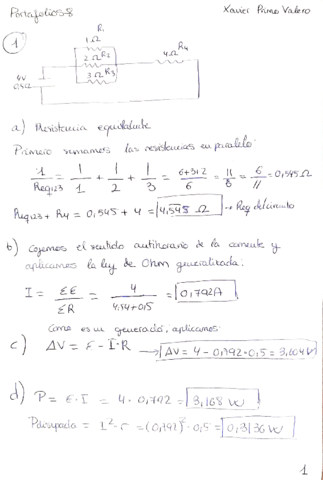 Portafolios 8
Xavier Primo Valero
1
R1
1Ω
2Ω R2
3Ω R3
4Ω R4
4V
0,5Ω
a) Resistencia equivalente
Primero sumamos las resistencias en paralelo:
1/Req123 = 1/1 + 1/2 + 1/3 = 6+3+2/6 = 11/6 = 6/11 = 0,545Ω
Req123 + R4 = 0,545 + 4 = 4,545 Ω → Req del circuito
b) Cogemos el sentido antihorario de la corriente y
aplicamos la ley de Ohm generalizada:
I = ΣE/ΣR = 4/4,54+0,5 = 0,792A
Como es un generador, aplicamos:
c) ΔV = E - I·R → ΔV = 4 - 0,792·0,5 = 3,604V
d) P = E·I = 4·0,792 = 3,168 W
Pdisipada = I²·r = (0,792)²·0,5 = 0,3136 W
1